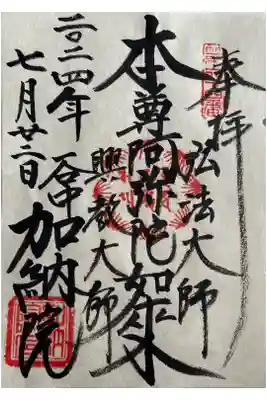 奉拝
弘法大師
本尊阿弥陀如来
興教大師
谷中 加納院
二〇二四年
七月廿二日